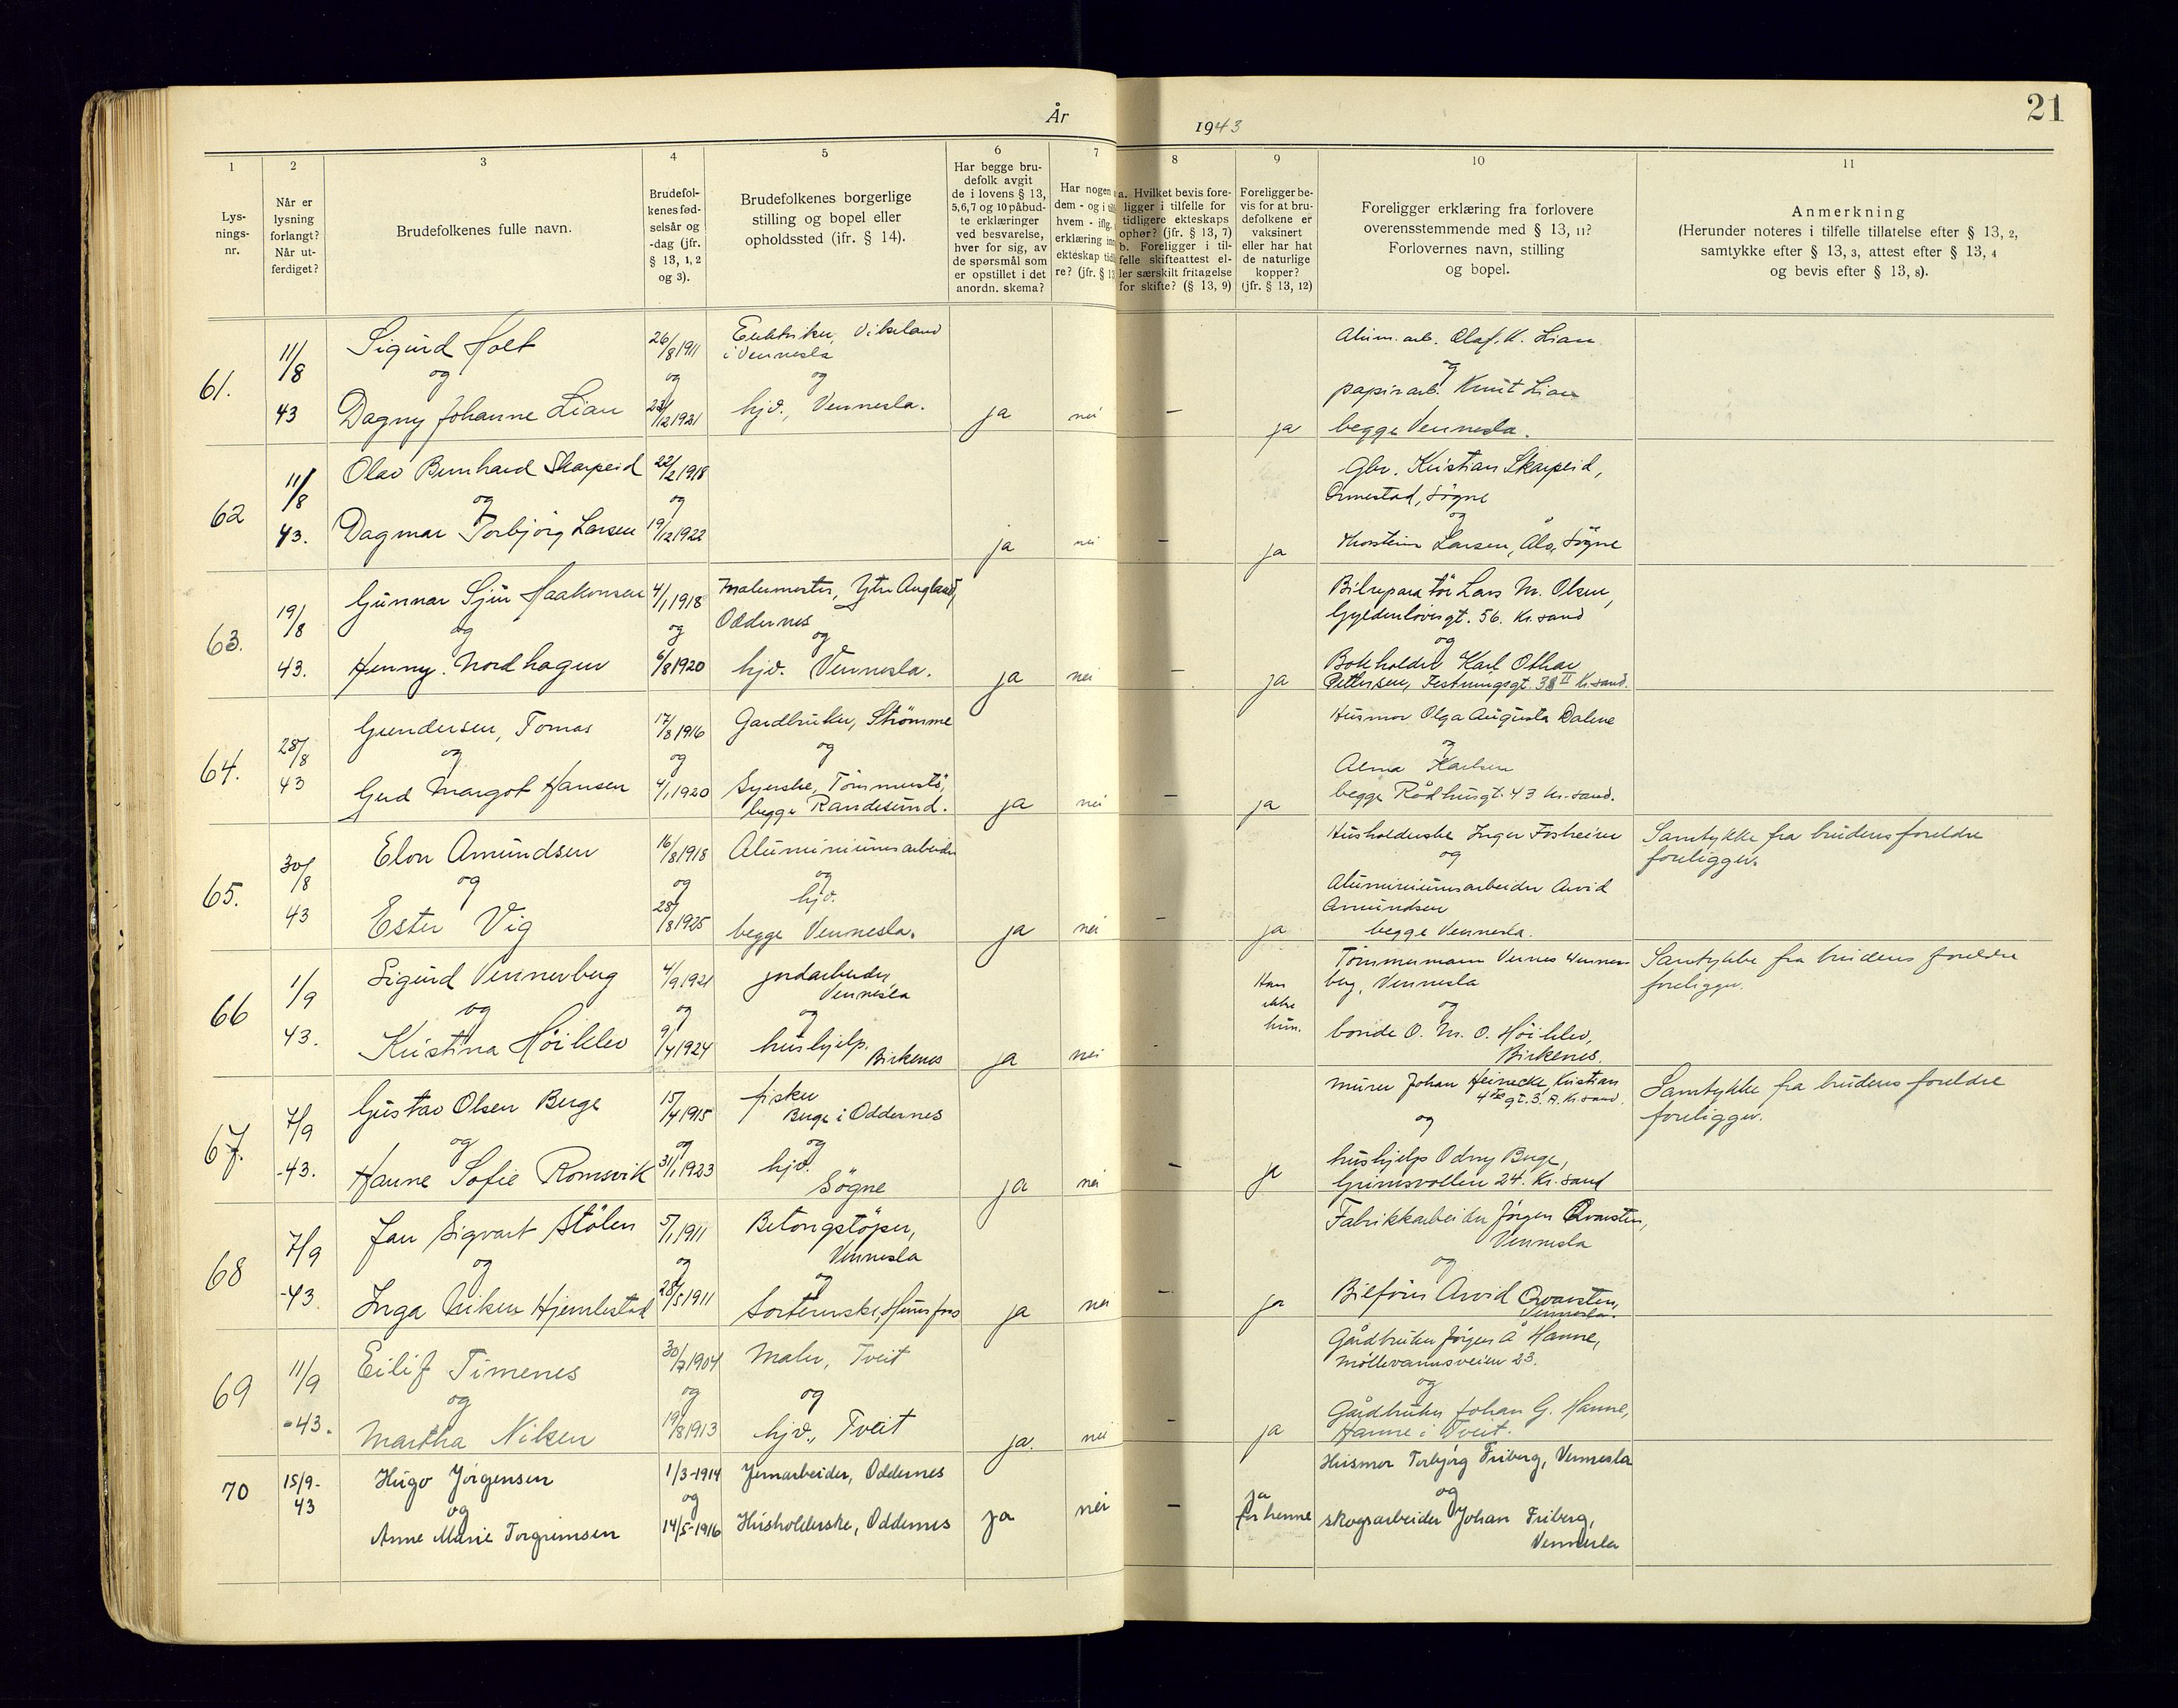 År
1943
21
1
2
3
4
5
6
7
8
9
10
11
Lys-
nings-
nr.
Når er
lysning
forlangt?
Når ut-
ferdiget?
Brudefolkenes fulle navn.
Brudefol-
kenes fød-
selsår og
-dag (jfr.
§ 13, 1, 2
og 3).
Brudefolkenes borgerlige
stilling og bopel eller
opholdssted (jfr. § 14).
Har begge bru-
defolk avgit
de i lovens § 13,
5,6,7 og 10 påbud-
te erklæringer
ved besvarelse,
hver for sig, av
de spørsmål som
er opstillet i det
anordn. skema?
Har nogen
dem - og i
hvem - ifig.
erklæring
ekteskap tid
re? (jfr. § 13
a. Hvilket bevis fore-
ligger i tilfelle for
tidligere ekteskaps
ophør? (jfr. § 13, 7)
b. Foreligger i til-
felle skifteattest el-
ler særskilt fritagelse
for skifte? (§ 13, 9)
Foreligger be-
vis for at bru-
defolkene er
vaksinert
eller har hat
de naturlige
kopper?
(jfr. § 13, 12)
Foreligger erklæring fra forlovere
overensstemmende med § 13, 11?
Forlovernes navn, stilling
og bopel.
Anmerkning
(Herunder noteres i tilfelle tillatelse efter § 13, 2,
samtykke efter § 13, 3, attest efter § 13, 4
og bevis efter § 13, 8).
61.
11/8
43
Sigurd Holt
og
Dagny Johanne Lian
26/8 1911
og
23/12 1921
Elektriker, Vikeland
i Vennesla
og
hjv., Vennesla.
ja
nei
-
ja
Alum. arb. Olaf. K. Lian
og
papirarb. Knut Lian
begge Vennesla.
62
11/8
43.
Olav Bernhard Skarpeid
og
Dagmar Torbjörg Larsen
22/2 1918
og
19/12 1922
ja
nei
-
ja
Gbr. Kristian Skarpeid,
Ormestad, Søgne
og
Thorstein Larsen, Ålo, Søgne
63.
19/8
43.
Gunnar Sjur Haakonsen
og
Henny. Nordhagen
4/1 1918
og
6/8 1920
Malermester, Ytre Augland,
Oddernes
og
hjv. Vennesla.
ja
nei
-
ja
Bilreparatör Lars M. Olsen,
Gyldenlövesgt. 56. Kr.sand
og
Bokholder Karl Othar
Pettersen, Festningsgt. 38 II Kr.sand.
64.
28/8
43
Gundersen, Tomas
og
Gerd Margot Hansen
17/8 1916
og
4/1 1920
Gardbruker, Strömme
og
Syerske, Tömmerstö,
begge Randesund.
ja
nei
-
ja
Husmor Olga Augusta Dalene
og
Alma Karlsen
begge Rådhusgt. 43 Kr.sand.
65.
30/8
43
Elon Amundsen
og
Ester Vig
16/8 1918
og
28/8 1925
Aluminiumsarbeider
og
hjv.
begge Vennesla.
ja
nei
-
ja
Husholderske Inger Fosheim
og
Aluminiumsarbeider Arvid
Amundsen
begge Vennesla.
Samtykke fra brudens foreldre
foreligger.
66
1/9
43.
Sigurd Vennerberg
og
Kristina Höiklev
4/9 1921
og
9/4 1924
jordarbeider
Vennesla
og
hushjelp.
Birkenes
ja
nei
Han
ikke
hun.
Tömmermann Vernes Venner-
berg, Vennesla
og
bonde O. M. O. Höiklev,
Birkenes.
Samtykke fra brudens foreldre
foreligger.
67.
7/9
-43.
Gustav Olsen Berge
og
Hanne Sofie Romsvik
15/4 1915
og
31/1 1923
fisker
Berge i Oddernes
og
hjv.
Søgne
ja
nei
-
ja
murer Johan Heinecke, Kristian
4des gt. 3. A. Kr.sand.
og
hushjelp Odny Berge,
Grimsvollen 24. Kr.sand
Samtykke fra brudens foreldre
foreligger.
68
7/9
-43.
Jan Sigvart Stölen
og
Inga Hjemlestad
5/1 1911
og
28/5 1911
Betongstöper,
Vennesla
og
Sortererske, Hunsfos
ja
nei
-
ja
Fabrikkarbeider Jörgen Qvarsten,
Vennesla
og
Bilförer Arvid Qvarsten,
Vennesla.
69
11/9
-43.
Eilif Timenes
og
Martha Nilsen
30/7 1904
og
19/8 1913
Maler, Tveit
og
hjv., Tveit
ja.
nei
-
ja
Gårdbruker Jörgen Å Hanne,
Möllevannsveien 23.
og
Gårdbruker Johan G. Hanne,
Hanne i Tveit.
70
15/9-
43
Hugo Jörgensen
og
Anne Marie Torgrimsen
1/3-1914
og
14/5-1916
Jernarbeider, Oddernes
Husholderske, Oddernes
ja
nei
-
ja
for henne
Husmor Torbjørg Friberg, Vennesla
og
skogsarbeider Johan Friberg,
Vennesla